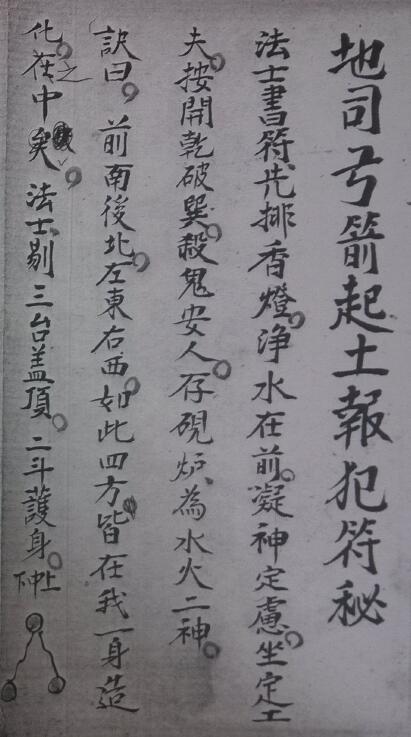 地司弓箭起土報犯符秘
法士書符先排香燈。淨水在前。凝神定慮。坐定工
夫。按開乾破巽。殺鬼安人。存硯炉為水火二神。
訣曰。前南後北。左東右西。如此四方皆在我一身造
化之在中矣。法士剔三台盖頂。二斗護身。
上中下